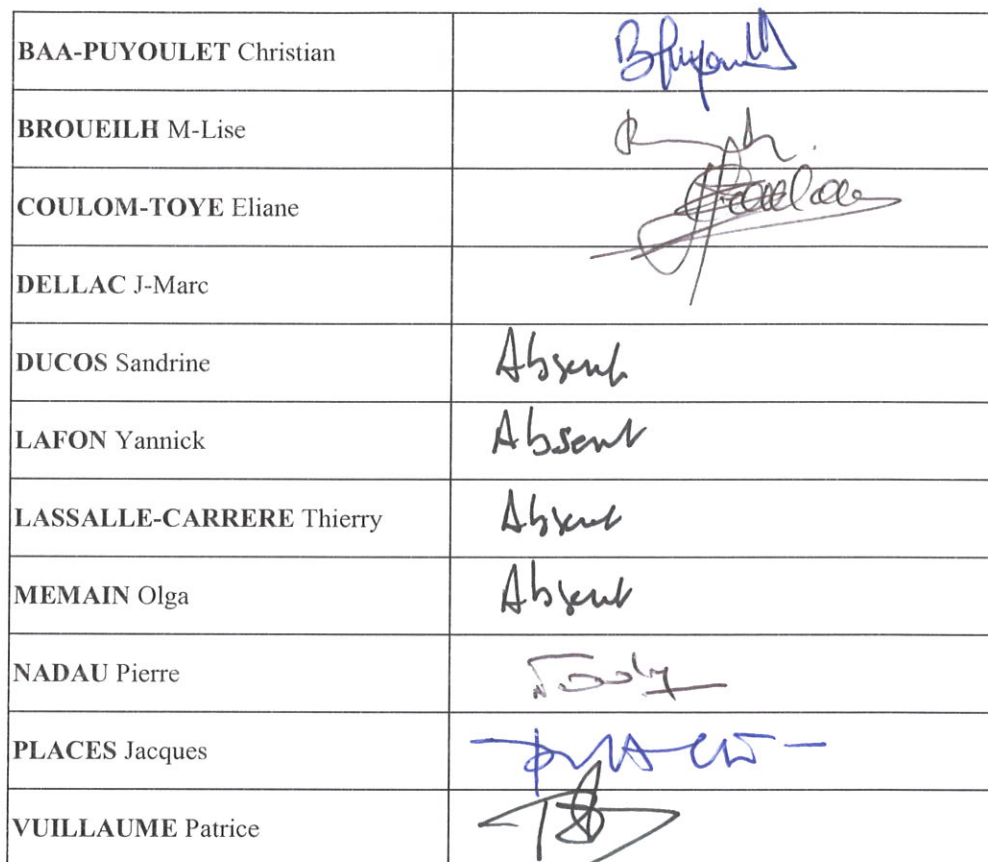 BAA-PUYOULET Christian
BROUEILH M-Lise
COULOM-TOYE Eliane
DELLAC J-Marc
DUCOS Sandrine Absent
LAFON Yannick Absent
LASSALLE-CARRERE Thierry Absent
MEMAIN Olga Absent
NADAU Pierre
PLACES Jacques
VUILLAUME Patrice